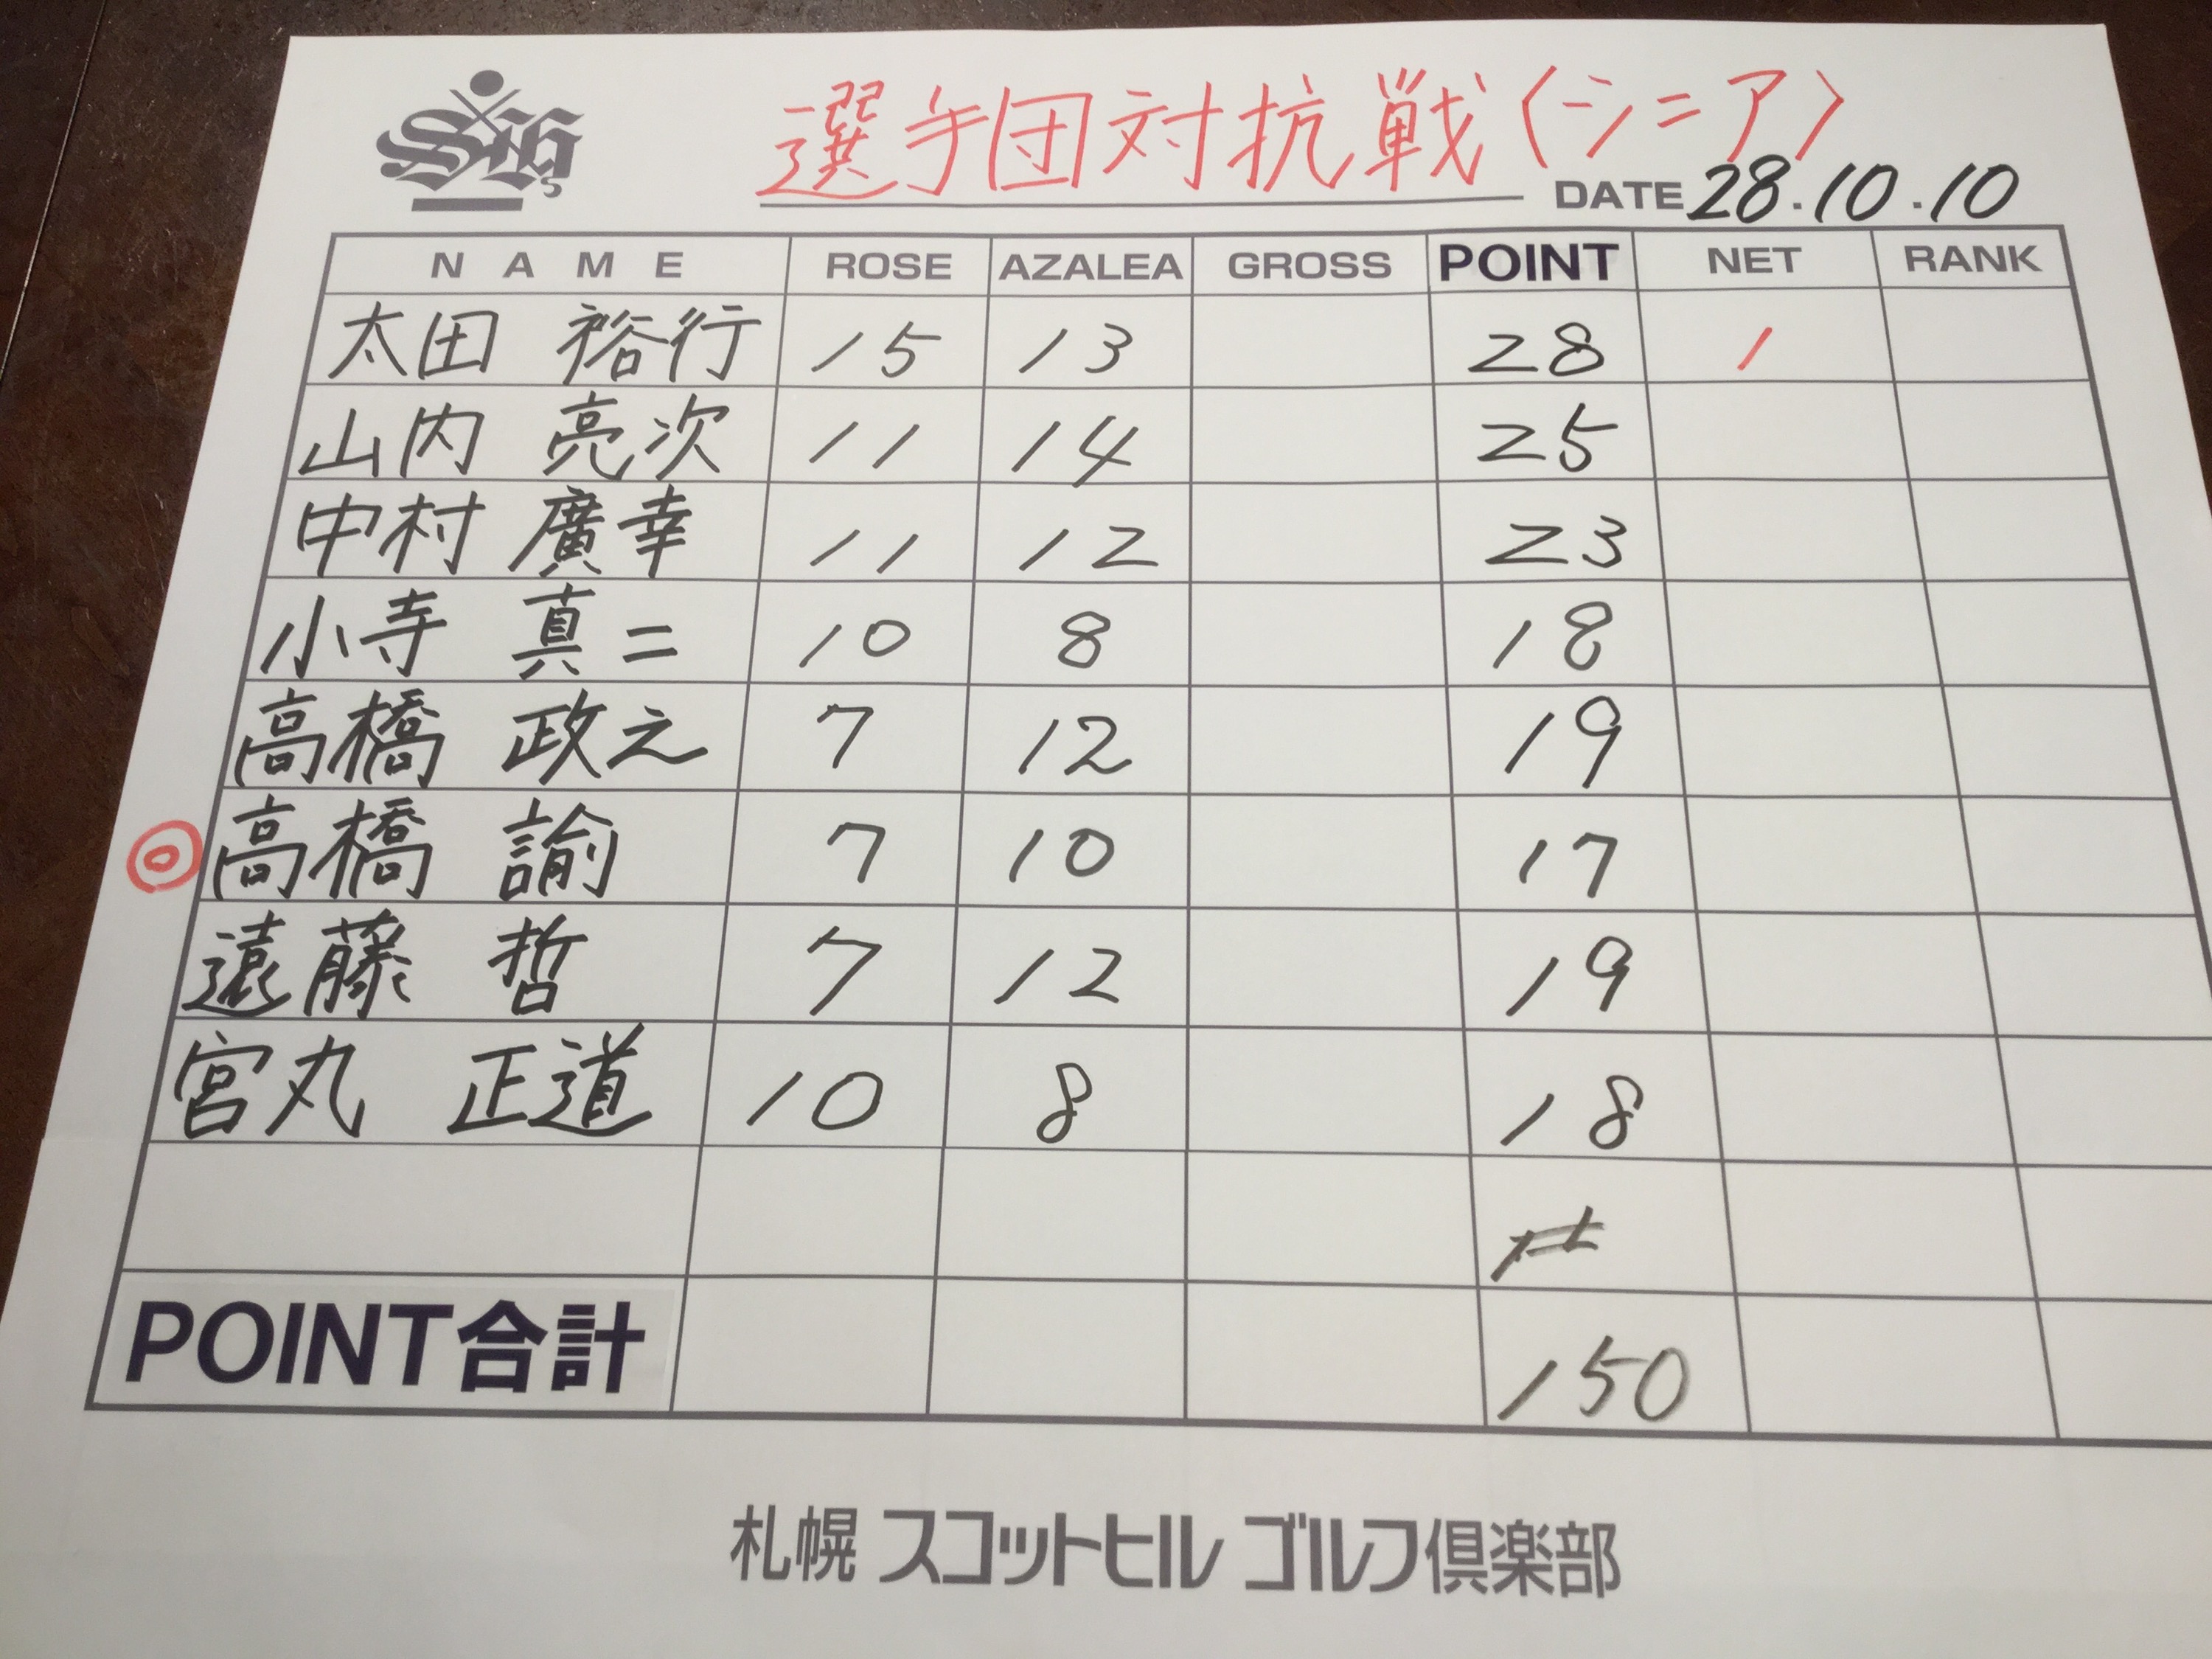 選手団対抗戦〈シニア〉
DATE 28.10.10
NAME ROSE AZALEA GROSS POINT NET RANK
太田 裕行 15 13 28 1
山内 亮次 11 14 25
中村 廣幸 11 12 23
小寺 真二 10 8 18
高橋 政之 7 12 19
◎高橋 諭 7 10 17
遠藤 哲 7 12 19
宮丸 正道 10 8 18
POINT合計 150
札幌 スコットヒル ゴルフ倶楽部